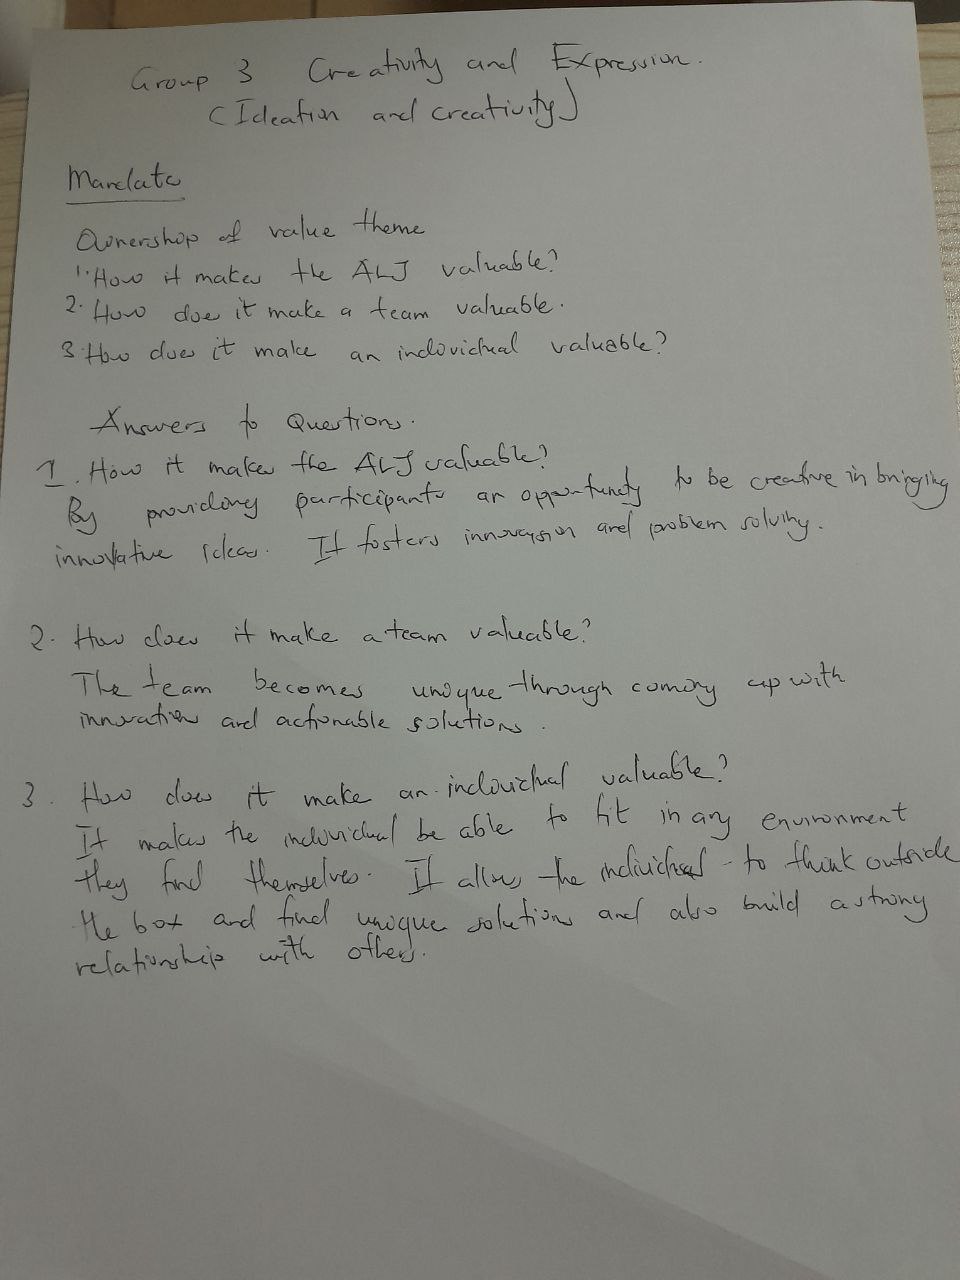 Group 3 Creativity and Expression.
(Ideation and creativity)
Mandate
Ownershop of value theme
1. How it makes the ALJ valuable?
2. How does it make a team valuable.
3. How does it make an individual valuable?
Answers to Questions.
1. How it makes the ALJ valuable?
By providing participants an opportunity to be creative in bringing
innovative ideas. It fosters innovation and problem solving.
2. How does it make a team valuable?
The team becomes unique through coming up with
innovation and actionable solutions.
3. How does it make an individual valuable?
It makes the individual be able to fit in any environment
they find themselves. It allows the individual to think outside
the box and find unique solutions and also build a strong
relationship with others.